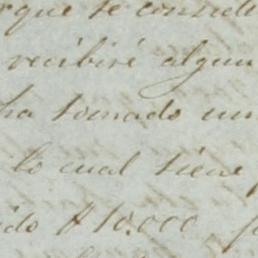 rque se consult
recibiré algun
ha tomado un
lo cual tiene
ido $10.000